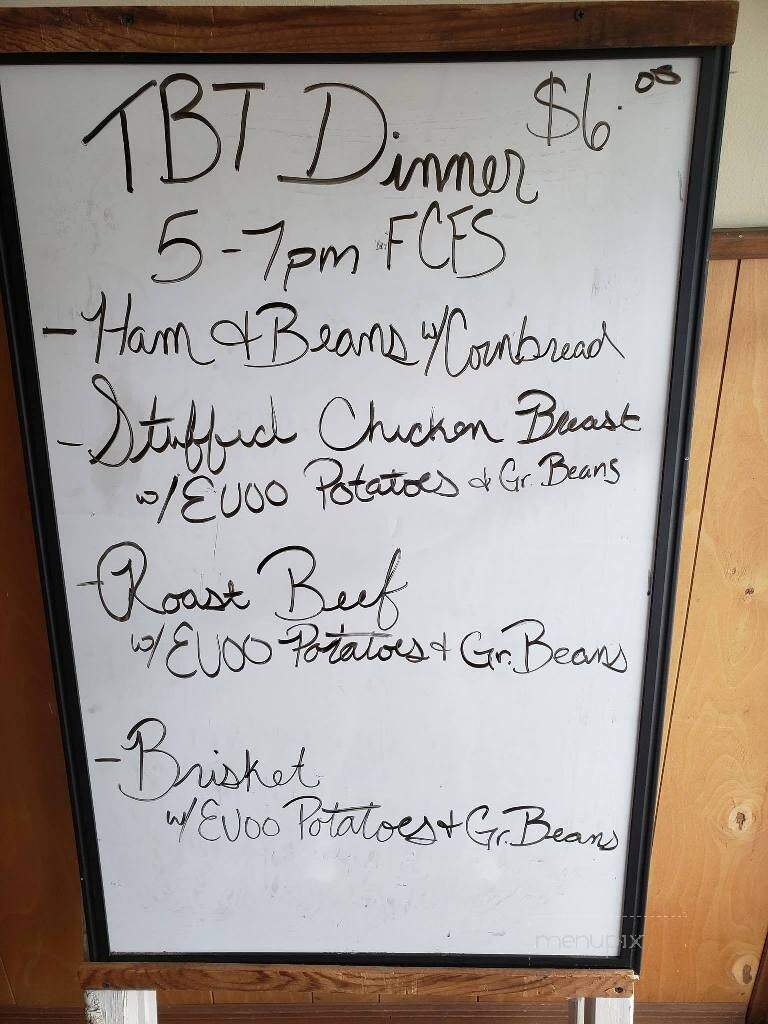 TBT Dinner $6.00
5-7pm FCFS
- Ham & Beans w/ Cornbread
- Stuffed Chicken Breast
w/ EVOO Potatoes & Gr. Beans
- Roast Beef
w/ EVOO Potatoes & Gr. Beans
- Brisket
w/ EVOO Potatoes & Gr. Beans
menupix